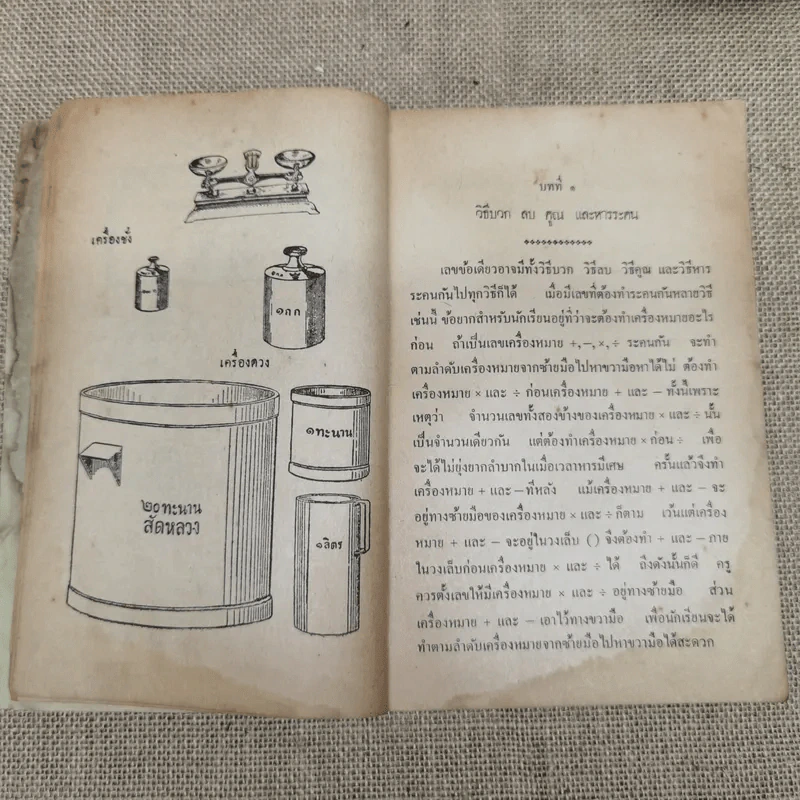 เครื่องชั่ง
๑กก
เครื่องตวง
๑ทะนาน
๒๐ทะนาน
สัดหลวง
๑ลิตร
บทที่ ๑
วิธีบวก ลบ คูณ และหารระคน
เลขข้อเดียวอาจมีทั้งวิธีบวก วิธีลบ วิธีคูณ และวิธีหาร
ระคนกันไปทุกวิธีก็ได้ เมื่อมีเลขที่ต้องทำระคนกันหลายวิธี
เช่นนี้ ข้อยากสำหรับนักเรียนอยู่ที่ว่าจะต้องทำเครื่องหมายอะไร
ก่อน ถ้าเป็นเลขเครื่องหมาย +,−,×,÷ ระคนกัน จะทำ
ตามลำดับเครื่องหมายจากซ้ายมือไปหาขวามือหาได้ไม่ ต้องทำ
เครื่องหมาย × และ ÷ ก่อนเครื่องหมาย + และ − ทั้งนี้เพราะ
เหตุว่า จำนวนเลขทั้งสองข้างของเครื่องหมาย × และ ÷ นั้น
เป็นจำนวนเดียวกัน แต่ต้องทำเครื่องหมาย × ก่อน ÷ เพื่อ
จะได้ไม่ยุ่งยากลำบากในเมื่อเวลาหารมีเศษ ครั้นแล้วจึงทำ
เครื่องหมาย + และ − ทีหลัง แม้เครื่องหมาย + และ − จะ
อยู่ทางซ้ายมือของเครื่องหมาย × และ ÷ ก็ตาม เว้นแต่เครื่อง
หมาย + และ − จะอยู่ในวงเล็บ () จึงต้องทำ + และ − ภาย
ในวงเล็บก่อนเครื่องหมาย × และ ÷ ได้ ถึงดังนั้นก็ดี ครู
ควรตั้งเลขให้มีเครื่องหมาย × และ ÷ อยู่ทางซ้ายมือ ส่วน
เครื่องหมาย + และ − เอาไว้ทางขวามือ เพื่อนักเรียนจะได้
ทำตามลำดับเครื่องหมายจากซ้ายมือไปหาขวามือได้สะดวก